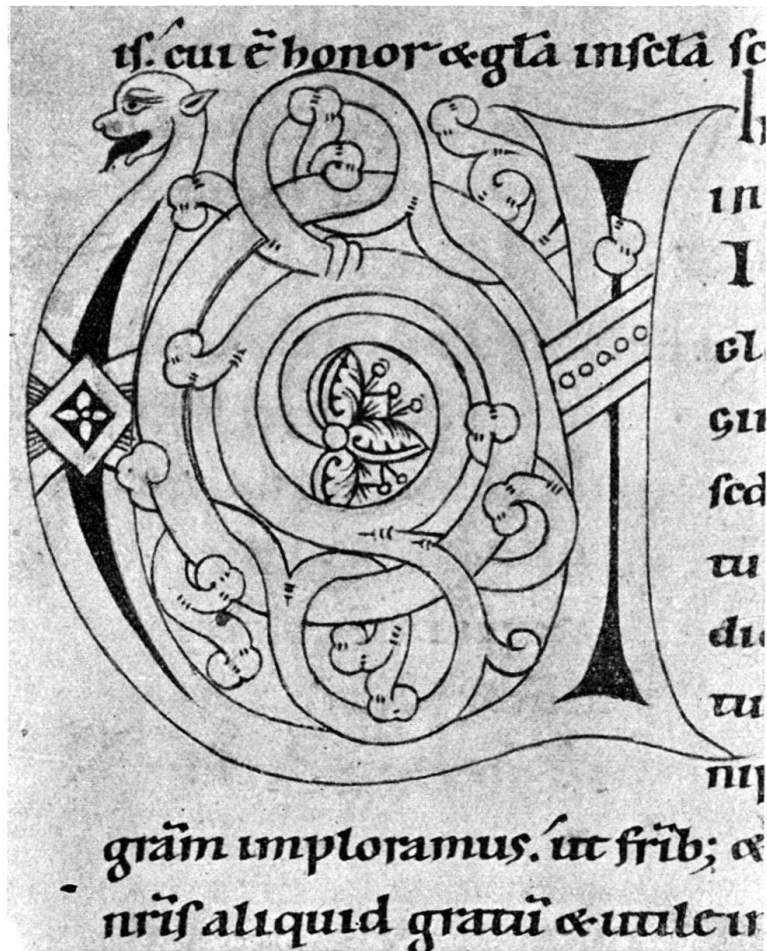 is. cui ē honor &gl̄a insc̄la sc
h
in
I
cl
gin
sed
tu
di
tu
nip
gr̄am imploramus. ut fr̄ib; &
nr̄is aliquid gratū &utile in